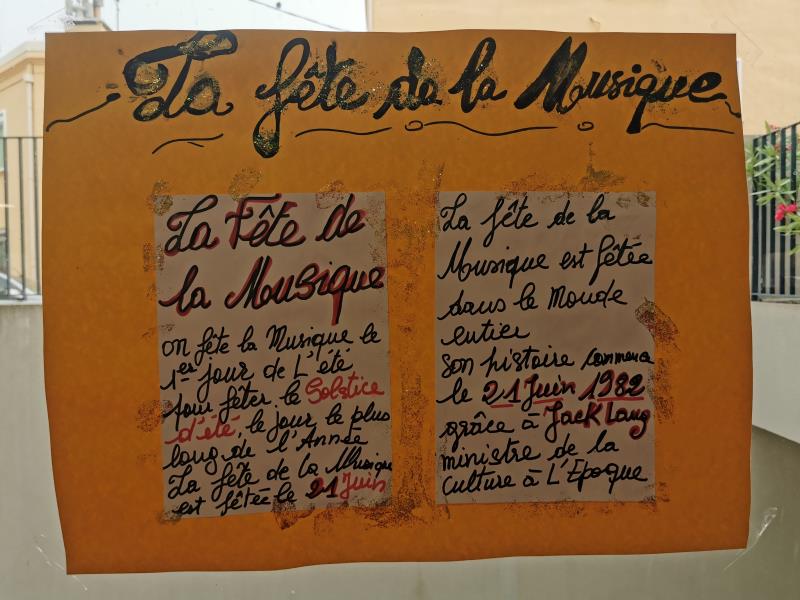 La fête de la Musique
La Fête de
la Musique
on fête la Musique le
1er jour de L'été
pour fêter le Solstice
d'été, le jour le plus
long de l'Année
La fête de la Musique
est fêtée le 21 Juin
La fête de la
Musique est fêtée
dans le Monde
entier
son histoire commence
le 21 Juin 1982
grâce à Jack Lang
ministre de la
Culture à L'Epoque